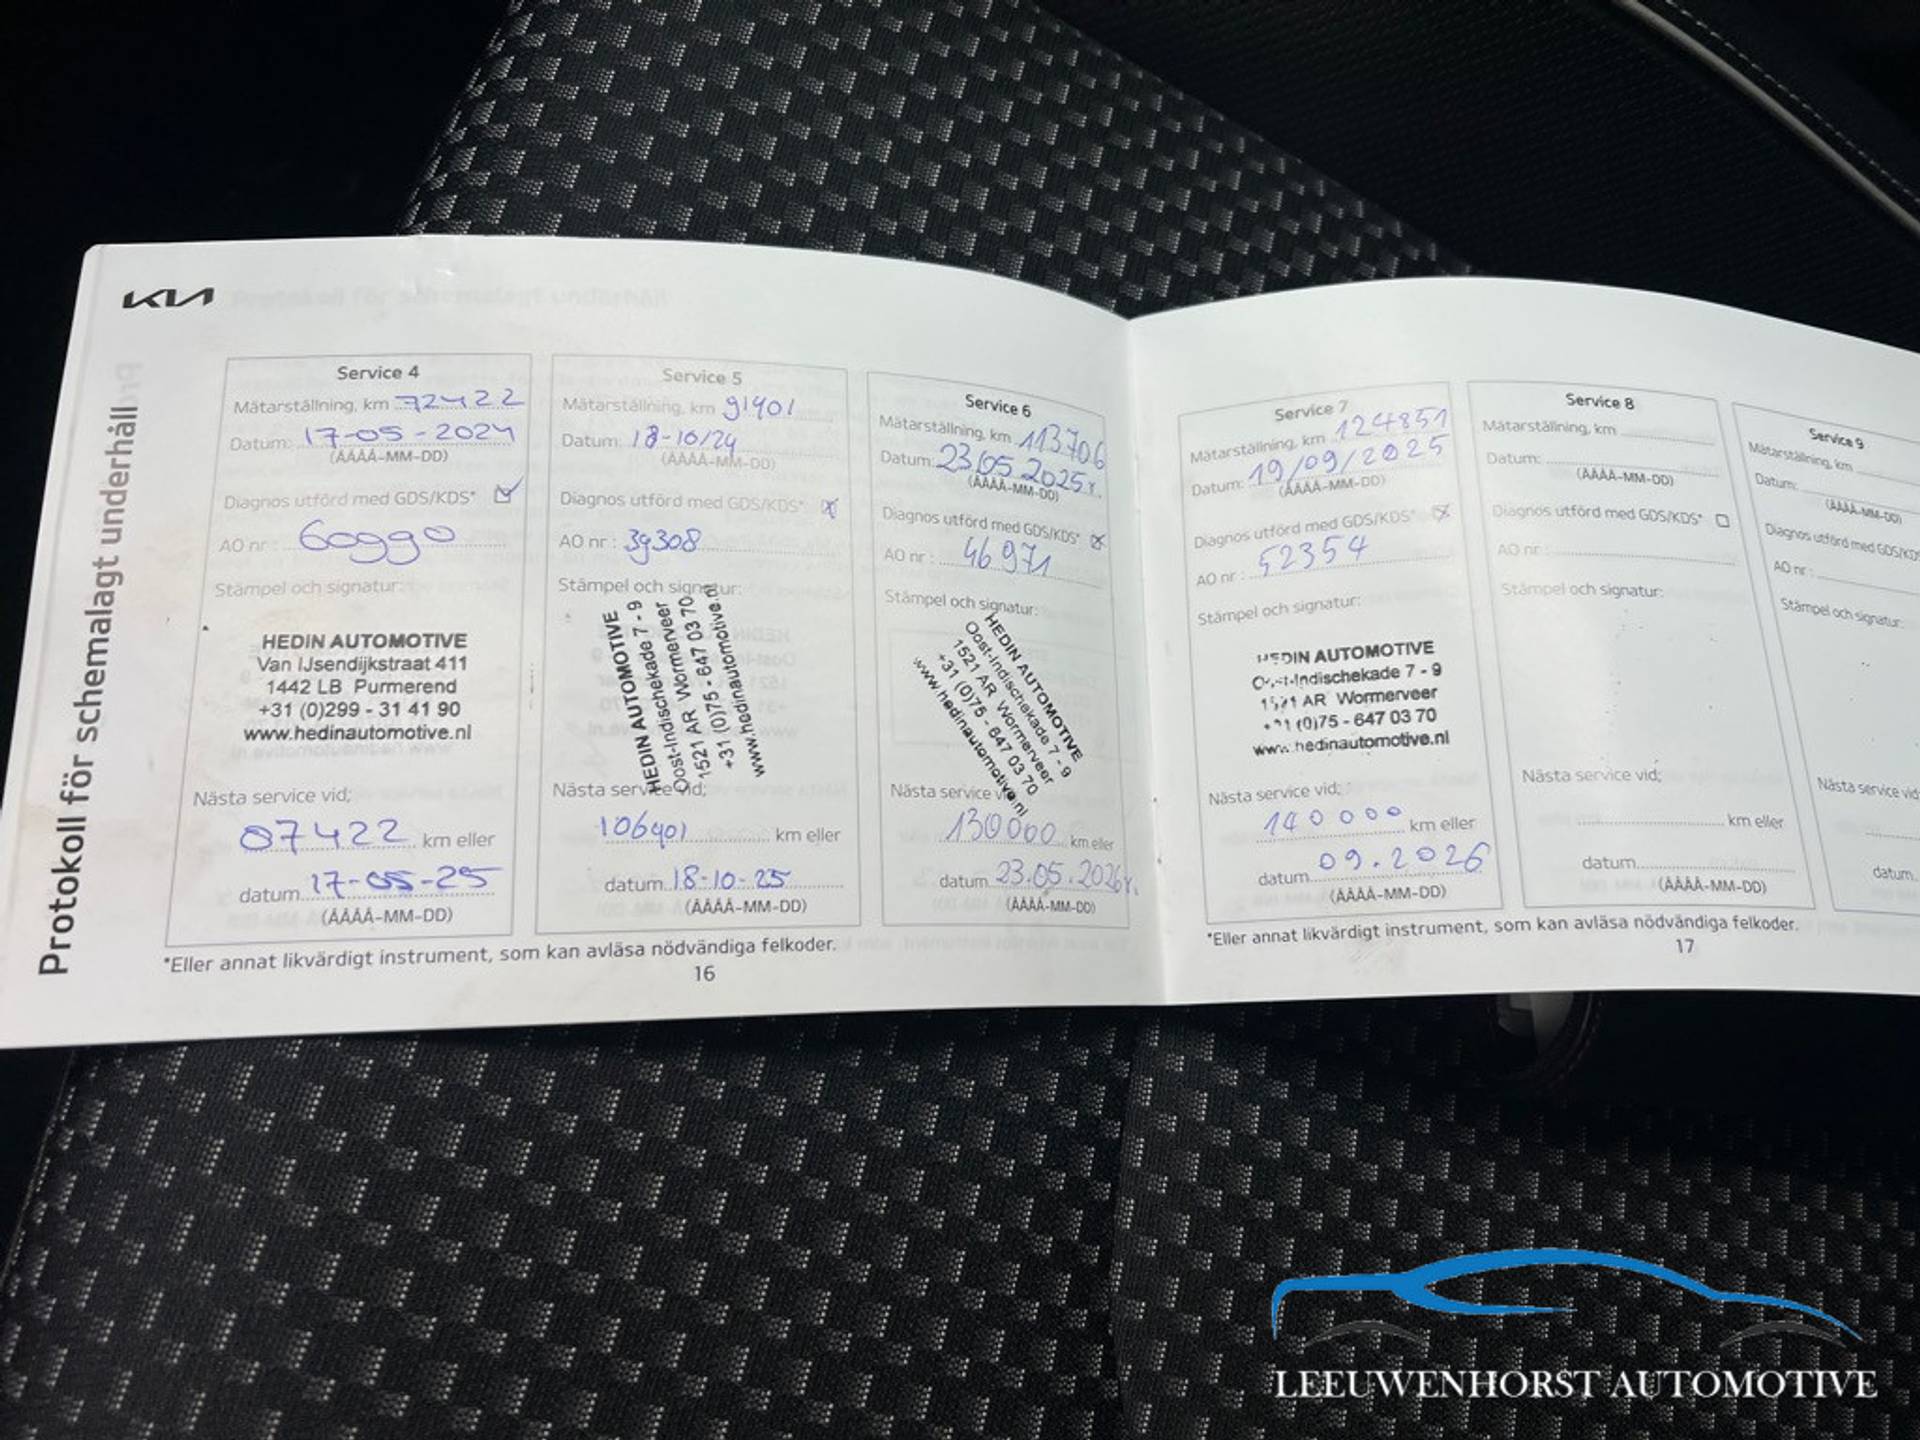 KIA
Protokoll för schemalagt underhåll
Service 4
Mätarställning, km 72422
Datum: 17-05-2024
(ÅÅÅÅ-MM-DD)
Diagnos utförd med GDS/KDS*
AO nr: 60990
Stämpel och signatur:
HEDIN AUTOMOTIVE
Van IJsendijkstraat 411
1442 LB Purmerend
+31 (0)299 - 31 41 90
www.hedinautomotive.nl
Nästa service vid;
87422 km eller
datum 17-05-25
(ÅÅÅÅ-MM-DD)
Service 5
Mätarställning, km 91401
Datum: 18-10/24
(ÅÅÅÅ-MM-DD)
Diagnos utförd med GDS/KDS*
AO nr: 39308
Stämpel och signatur:
HEDIN AUTOMOTIVE
Oost-Indischekade 7 - 9
1521 AR Wormerveer
+31 (0)75 - 647 03 70
www.hedinautomotive.nl
Nästa service vid;
106401 km eller
datum 18-10-25
(ÅÅÅÅ-MM-DD)
Service 6
Mätarställning, km 113706
Datum: 23/05.2025r.
(ÅÅÅÅ-MM-DD)
Diagnos utförd med GDS/KDS*
AO nr: 46971
Stämpel och signatur:
HEDIN AUTOMOTIVE
Oost-Indischekade 7 - 9
1521 AR Wormerveer
+31 (0)75 - 647 03 70
www.hedinautomotive.nl
Nästa service vid;
130000 km eller
datum 23.05.2026r.
(ÅÅÅÅ-MM-DD)
*Eller annat likvärdigt instrument, som kan avläsa nödvändiga felkoder.
16
Service 7
Mätarställning, km 124851
Datum: 19/09/2025
(ÅÅÅÅ-MM-DD)
Diagnos utförd med GDS/KDS*
AO nr: 52354
Stämpel och signatur:
HEDIN AUTOMOTIVE
Oost-Indischekade 7 - 9
1521 AR Wormerveer
+31 (0)75 - 647 03 70
www.hedinautomotive.nl
Nästa service vid;
140000 km eller
datum 09.2026
(ÅÅÅÅ-MM-DD)
Service 8
Mätarställning, km
Datum:
(ÅÅÅÅ-MM-DD)
Diagnos utförd med GDS/KDS*
AO nr:
Stämpel och signatur:
Nästa service vid;
km eller
datum
(ÅÅÅÅ-MM-DD)
Service 9
Mätarställning, km
Datum:
(ÅÅÅÅ-MM-DD)
Diagnos utförd med GDS/KDS
AO nr:
Stämpel och signatur:
Nästa service vid
datum
*Eller annat likvärdigt instrument, som kan avläsa nödvändiga felkoder.
17
LEEUWENHORST AUTOMOTIVE